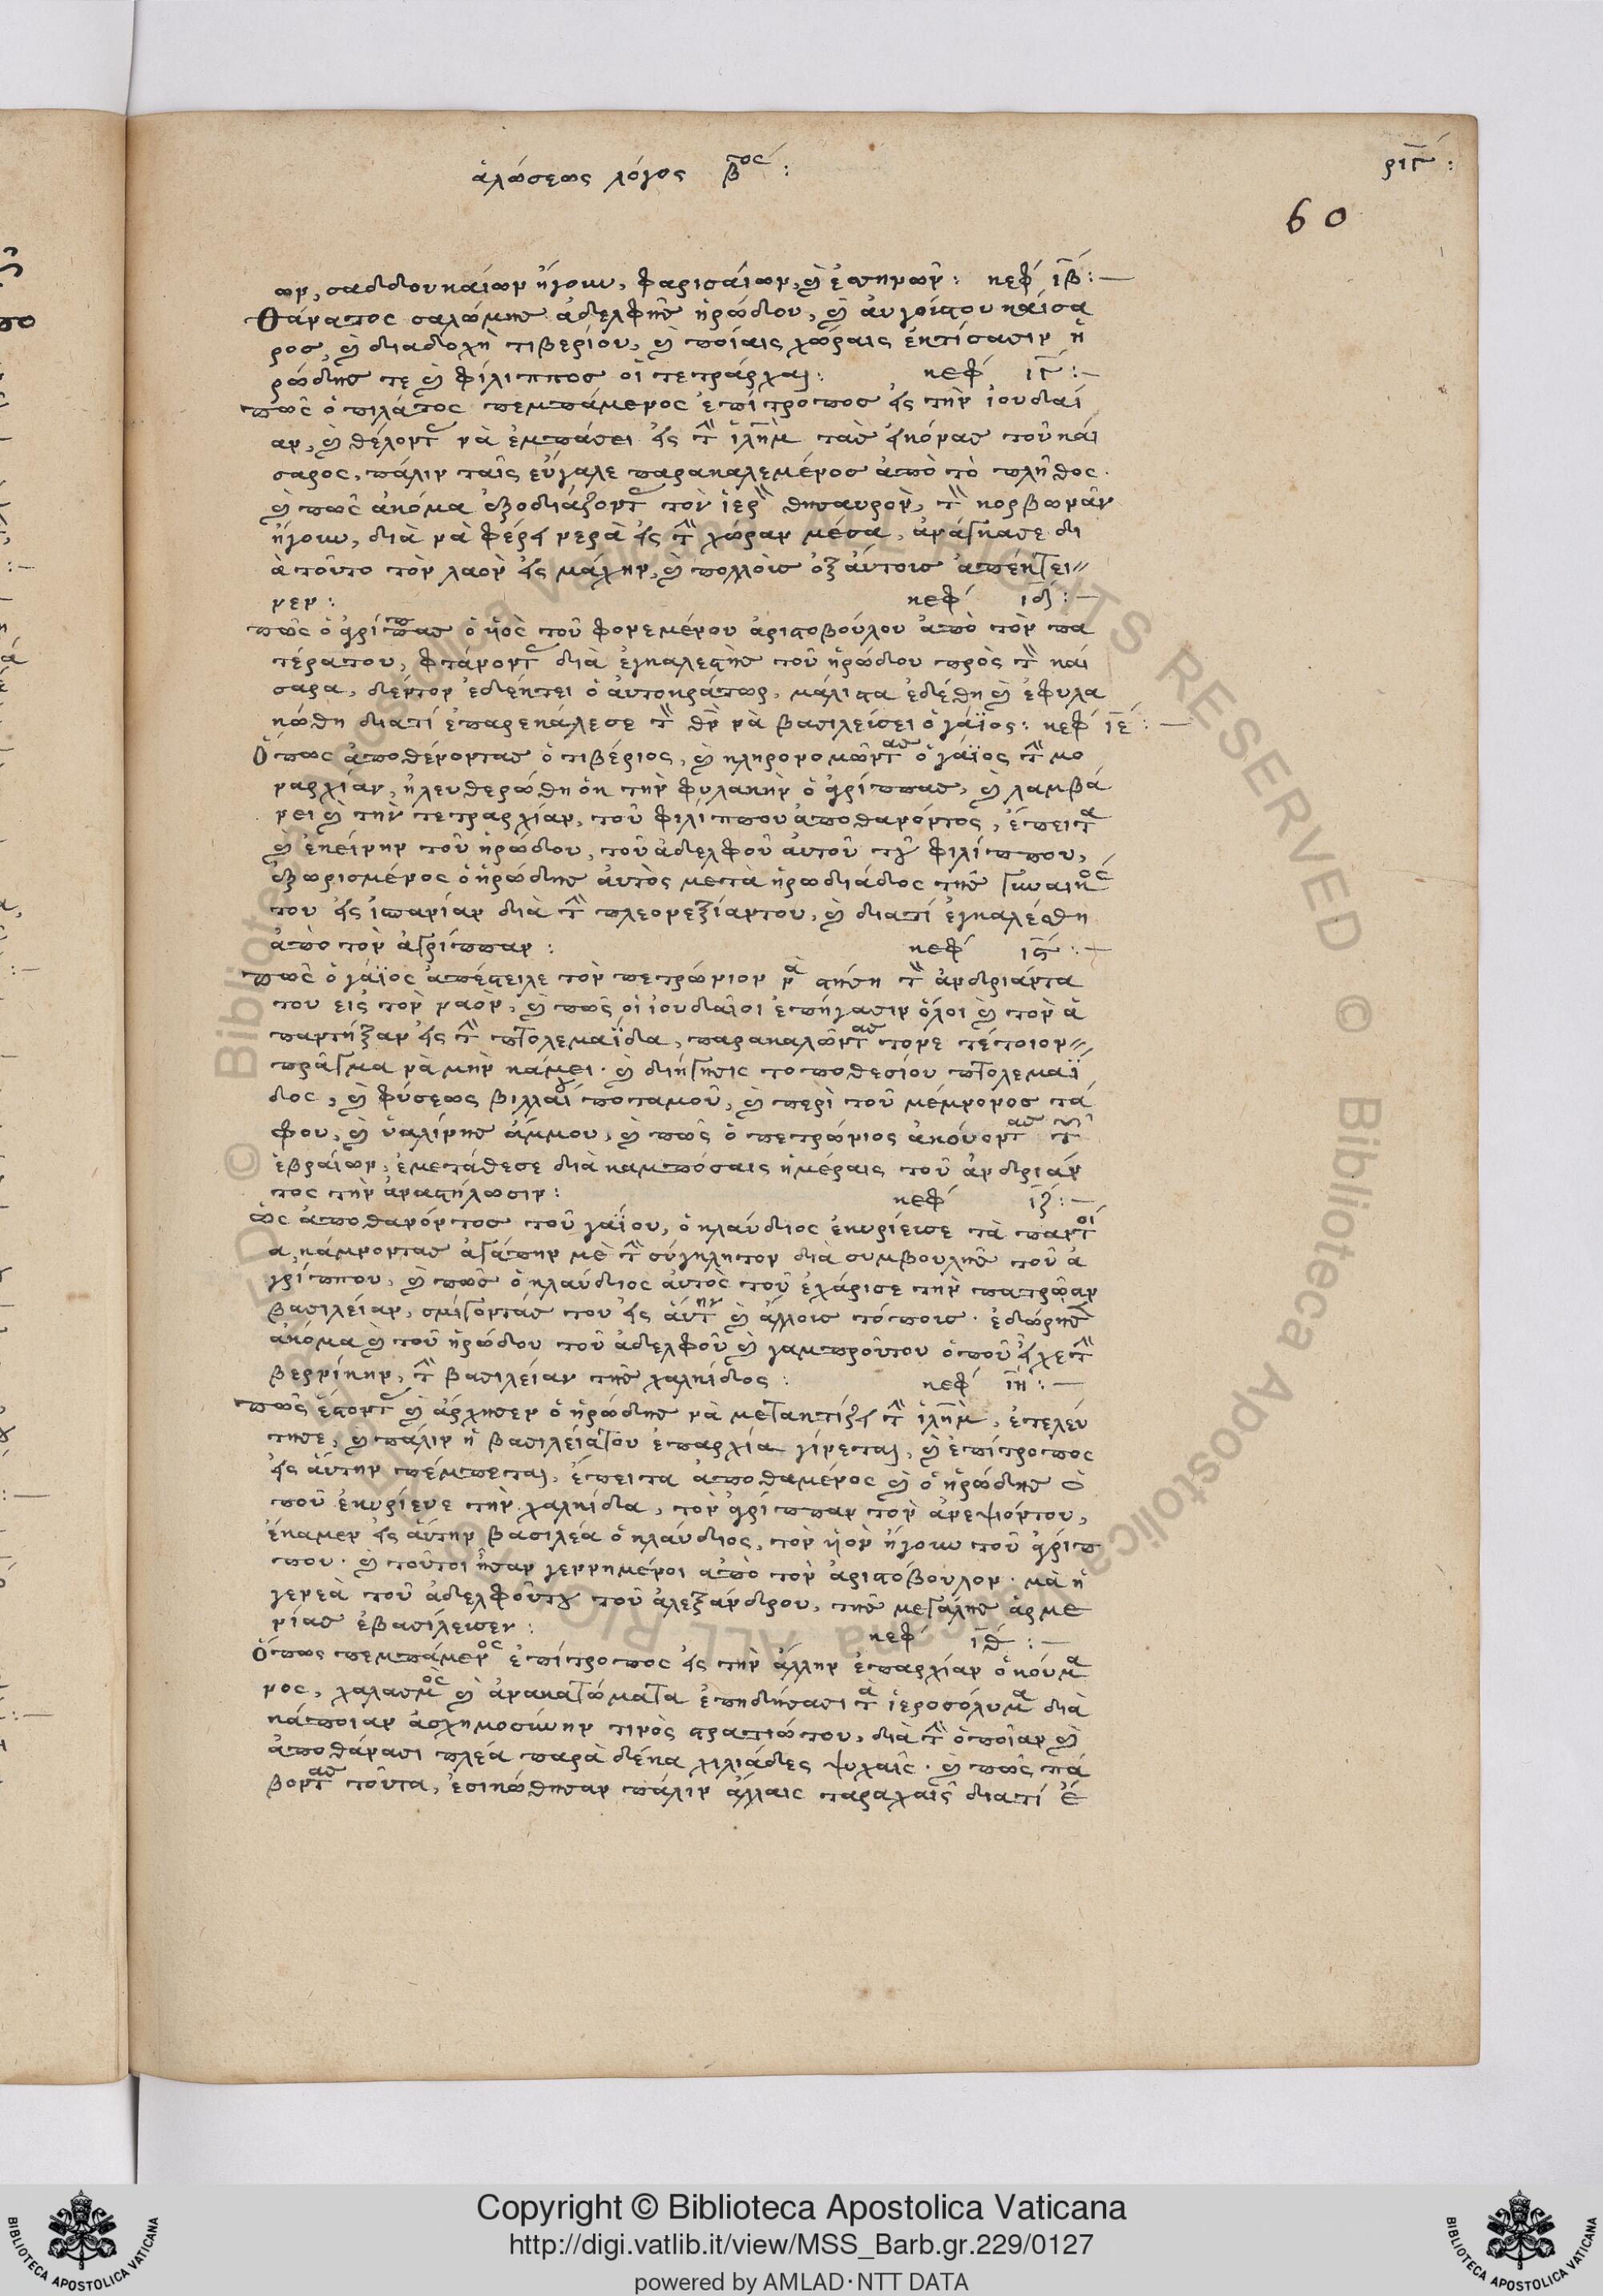 ἁλώσεως λόγος β^ος :
ριγ :
60
ων, σαδδουκαίων ἤγουν, φαρισαίων, καὶ ἐσσηνῶν : κεφ ιβ :—
Θάνατος σαλώμης ἀδελφῆς ἡρώδου, καὶ αὐγούστου καίσα
ρος, καὶ διαδοχὴ τιβερίου, καὶ ποίαις χώραις ἐκτίσασιν ἡ
ρώδης τε καὶ φίλιππος οἱ τετράρχαι : κεφ ιγ :—
πῶς ὁ πιλάτος πεμπάμενος ἐπίτροπος εἰς τὴν ἰουδαί
αν, καὶ θέλοντας νὰ ἐμπάσει εἰς τὴν ἱλημ ταῖς εἰκόνας τοῦ καί
σαρος, πάλιν ταῖς εὔγαλε παρακαλεμένος ἀπὸ τὸ πλῆθος.
καὶ πῶς ἀκόμα ἐξοδιάζοντας τὸν ἱερὸν θησαυρὸν, τὸν κορβωνᾶν
ἤγουν, διὰ νὰ φέρει νερὰ εἰς τὴν χώραν μέσα, ἀνάγκασε δι
ὰ τοῦτο τὸν λαὸν εἰς μάχην, καὶ πολλοὺς ἐξ αὐτοὺς ἀπέκτει
νεν : κεφ ιδ :—
πῶς ὁ ἀγρίππας ὁ ὑὸς τοῦ φονεμένου ἀριστοβούλου ἀπὸ τὸν πα
τέρατου, φτάνοντας διὰ ἐγκαλεστὴς τοῦ ἡρώδου πρὸς τὸν καί
σαρα, δέντον ἐδέκτει ὁ αὐτοκράτωρ, μάλιστα ἐδέθη καὶ ἐφυλα
κώθη διατί ἐπαρεκάλεσε τὸν θν νὰ βασιλεύσει ὁ γάϊος : κεφ ιε :—
Ὅπως ἀποθένοντας ὁ τιβέριος, καὶ κληρονομῶντας ὁ γάϊος τὴν μο
ναρχίαν, ἠλευθερώθη ἐκ τὴν φυλακὴν ὁ ἀγρίππας, καὶ λαμβά
νει καὶ τὴν τετραρχίαν, τοῦ φιλίππου ἀποθανόντος, ἔπειτα
καὶ ἐκείνην τοῦ ἡρώδου, τοῦ ἀδελφοῦ αὐτοῦ τοῦ φιλίππου,
ἐξωρισμένος ὁ ἡρώδης αὐτὸς μετὰ ἡρωδιάδος τῆς γυναικός
του εἰς ἱσπανίαν διὰ τὴν πλεονεξίαντου, καὶ διατί ἐγκαλέσθη
ἀπὸ τὸν ἀγρίππαν : κεφ ις :—
πῶς ὁ γάϊος ἀπέστειλε τὸν πετρώνιον νὰ στήση τὸν ἀνδριάντα
του εἰς τὸν ναὸν, καὶ πῶς οἱ ἰουδαῖοι ἐπήγασιν ὅλοι καὶ τὸν ἀ
παντήξαν εἰς τὴν πτολεμαΐδα, παρακαλῶντας τονε τέτοιον
πρᾶγμα νὰ μὴν κάμει. καὶ διήγησις τοποθεσίου πτολεμαΐ
δος, καὶ φύσεως βιλλαί ποταμοῦ, καὶ περὶ τοῦ μέμνονος τά
φου, καὶ ὑαλίνης ἄμμου, καὶ πῶς ὁ πετρώνιος ἀκούοντας τῶν
ἑβραίων, ἐμετάθεσε διὰ καμπόσαις ἡμέραις τοῦ ἀνδριάν
τος τὴν ἀναστήλωσιν : κεφ ιζ :—
ὡς ἀποθανόντος τοῦ γαΐου, ὁ κλαύδιος ἐκυρίευσε τὰ παντοῖ
α, κάμνοντας ἀγάπην μὲ τὴν σύγκλητον διὰ συμβουλῆς τοῦ ἀ
γρίππου, καὶ πῶς ὁ κλαύδιος αὐτὸς τοῦ ἐχάρισε τὴν πατρῷαν
βασιλείαν, σμίγοντάς του εἰς αὐτὴν καὶ ἄλλους τόπους. ἐδώρησε
ἀκόμα καὶ τοῦ ἡρώδου τοῦ ἀδελφοῦ καὶ γαμπροῦτου ὁποῦ εἶχε τὴν
βερνίκην, τὴν βασιλείαν τῆς χαλκίδος : κεφ ιη :—
πῶς ἔστοντας καὶ ἄρχησεν ὁ ἡρώδης νὰ μετακτίζει τὴν ἱλημ, ἐτελεύ
τησε, καὶ πάλιν ἡ βασιλείατου ἐπαρχία γίνεται, καὶ ἐπίτροπος
εἰς αὐτην πέμπεται, ἔπειτα ἀποθαμένος καὶ ὁ ἡρώδης ὁ
ποῦ ἐκυρίευε τὴν χαλκίδα, τὸν ἀγρίππαν τὸν ἀνεψιόντου,
ἔκαμεν εἰς αὐτην βασιλέα ὁ κλαύδιος, τὸν ὑὸν ἤγουν τοῦ ἀγρίπ
που. καὶ τοῦτοι ἦσαν γεννημένοι ἀπὸ τὸν ἀριστόβουλον. μὰ ἡ
γενεὰ τοῦ ἀδελφοῦτου τοῦ ἀλεξάνδρου, τῆς μεγάλης ἀρμε
νίας ἐβασίλευσεν : κεφ ιθ :—
Ὅπως πεμπάμενος ἐπίτροπος εἰς τὴν ἄλλην ἐπαρχίαν ὁ κούμα
νος, χαλασμὸς καὶ ἀνακατώματα ἐπηδήσασι τὰ ἱεροσόλυμα διὰ
κάποιαν ἀσχημοσύνην τινὸς στρατιώτου, διὰ τὴν ὁποῖαν καὶ
ἀποθάνασι πλέα παρὰ δέκα χιλιάδες ψυχαῖς. καὶ πῶς πά
βοντας τοῦτα, ἐσικώθησαν πάλιν ἄλλαις ταραχαῖς διατί ἐ
Copyright © Biblioteca Apostolica Vaticana
http://digi.vatlib.it/view/MSS_Barb.gr.229/0127
powered by AMLAD·NTT DATA